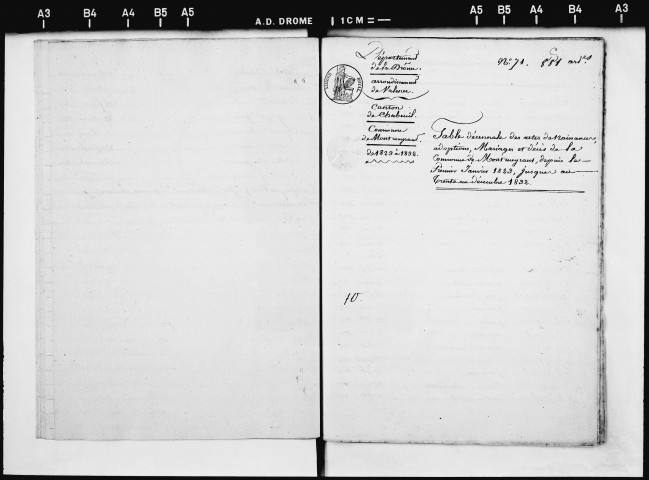 A3 B4 A4 B5 A5 A.D. DROME 1 CM A5 B5 A4 B4 A3
Département
de la Drôme.
arrondissement
de Valence
Canton
de Chabeuil.
Commune
de Montmeyrant.
de 1823 à 1832.
N° 71. 881
Table décennale des actes de naissance,
adoptions, Mariages et décès de la
Commune de Montmeyrant, depuis le
Premier Janvier 1823, jusques au
trente un décembre 1832.
10